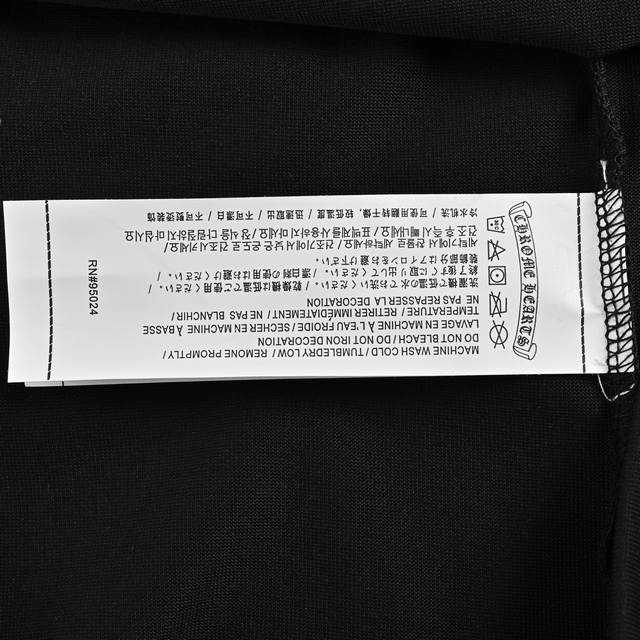 CHROME HEARTS
MACHINE WASH COLD/ TUMBLEDRY LOW/ REMONE PROMPTLY/
DO NOT BLEACH/ DO NOT IRON DECORATION
LAVAGE EN MACHINE À L'EAU FROIDE/ SECHER EN MACHINE À BASSE
TEMPÉRATURE/ RETIRER IMMÉDIATEMENT/ NE PAS BLANCHIR/
NE PAS REPASSER LA DECORATION
洗濯機で低温の水でお洗い下さい。乾燥機は低温でご使用ください。
終了後すぐに取り出して下さい。漂白剤の使用はお避けください。
装飾部分にはアイロンをお避け下さい。
冷水机洗 / 可使用翻转干燥，较低温度 / 迅速取出 / 不可漂白 / 不可熨烫装饰
RN#95024